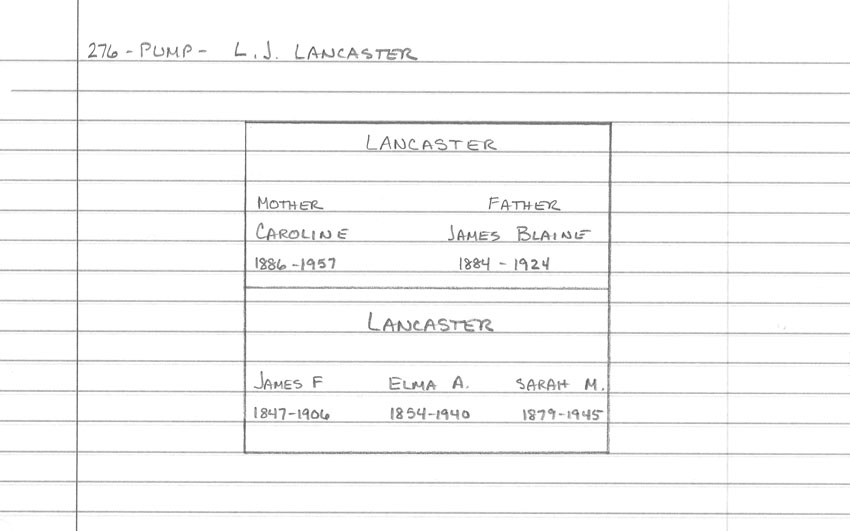 276 - PUMP - L. J. LANCASTER
LANCASTER
MOTHER FATHER
CAROLINE JAMES BLAINE
1886 - 1957 1884 - 1924
LANCASTER
JAMES F ELMA A. SARAH M.
1847-1906 1854-1940 1879-1945